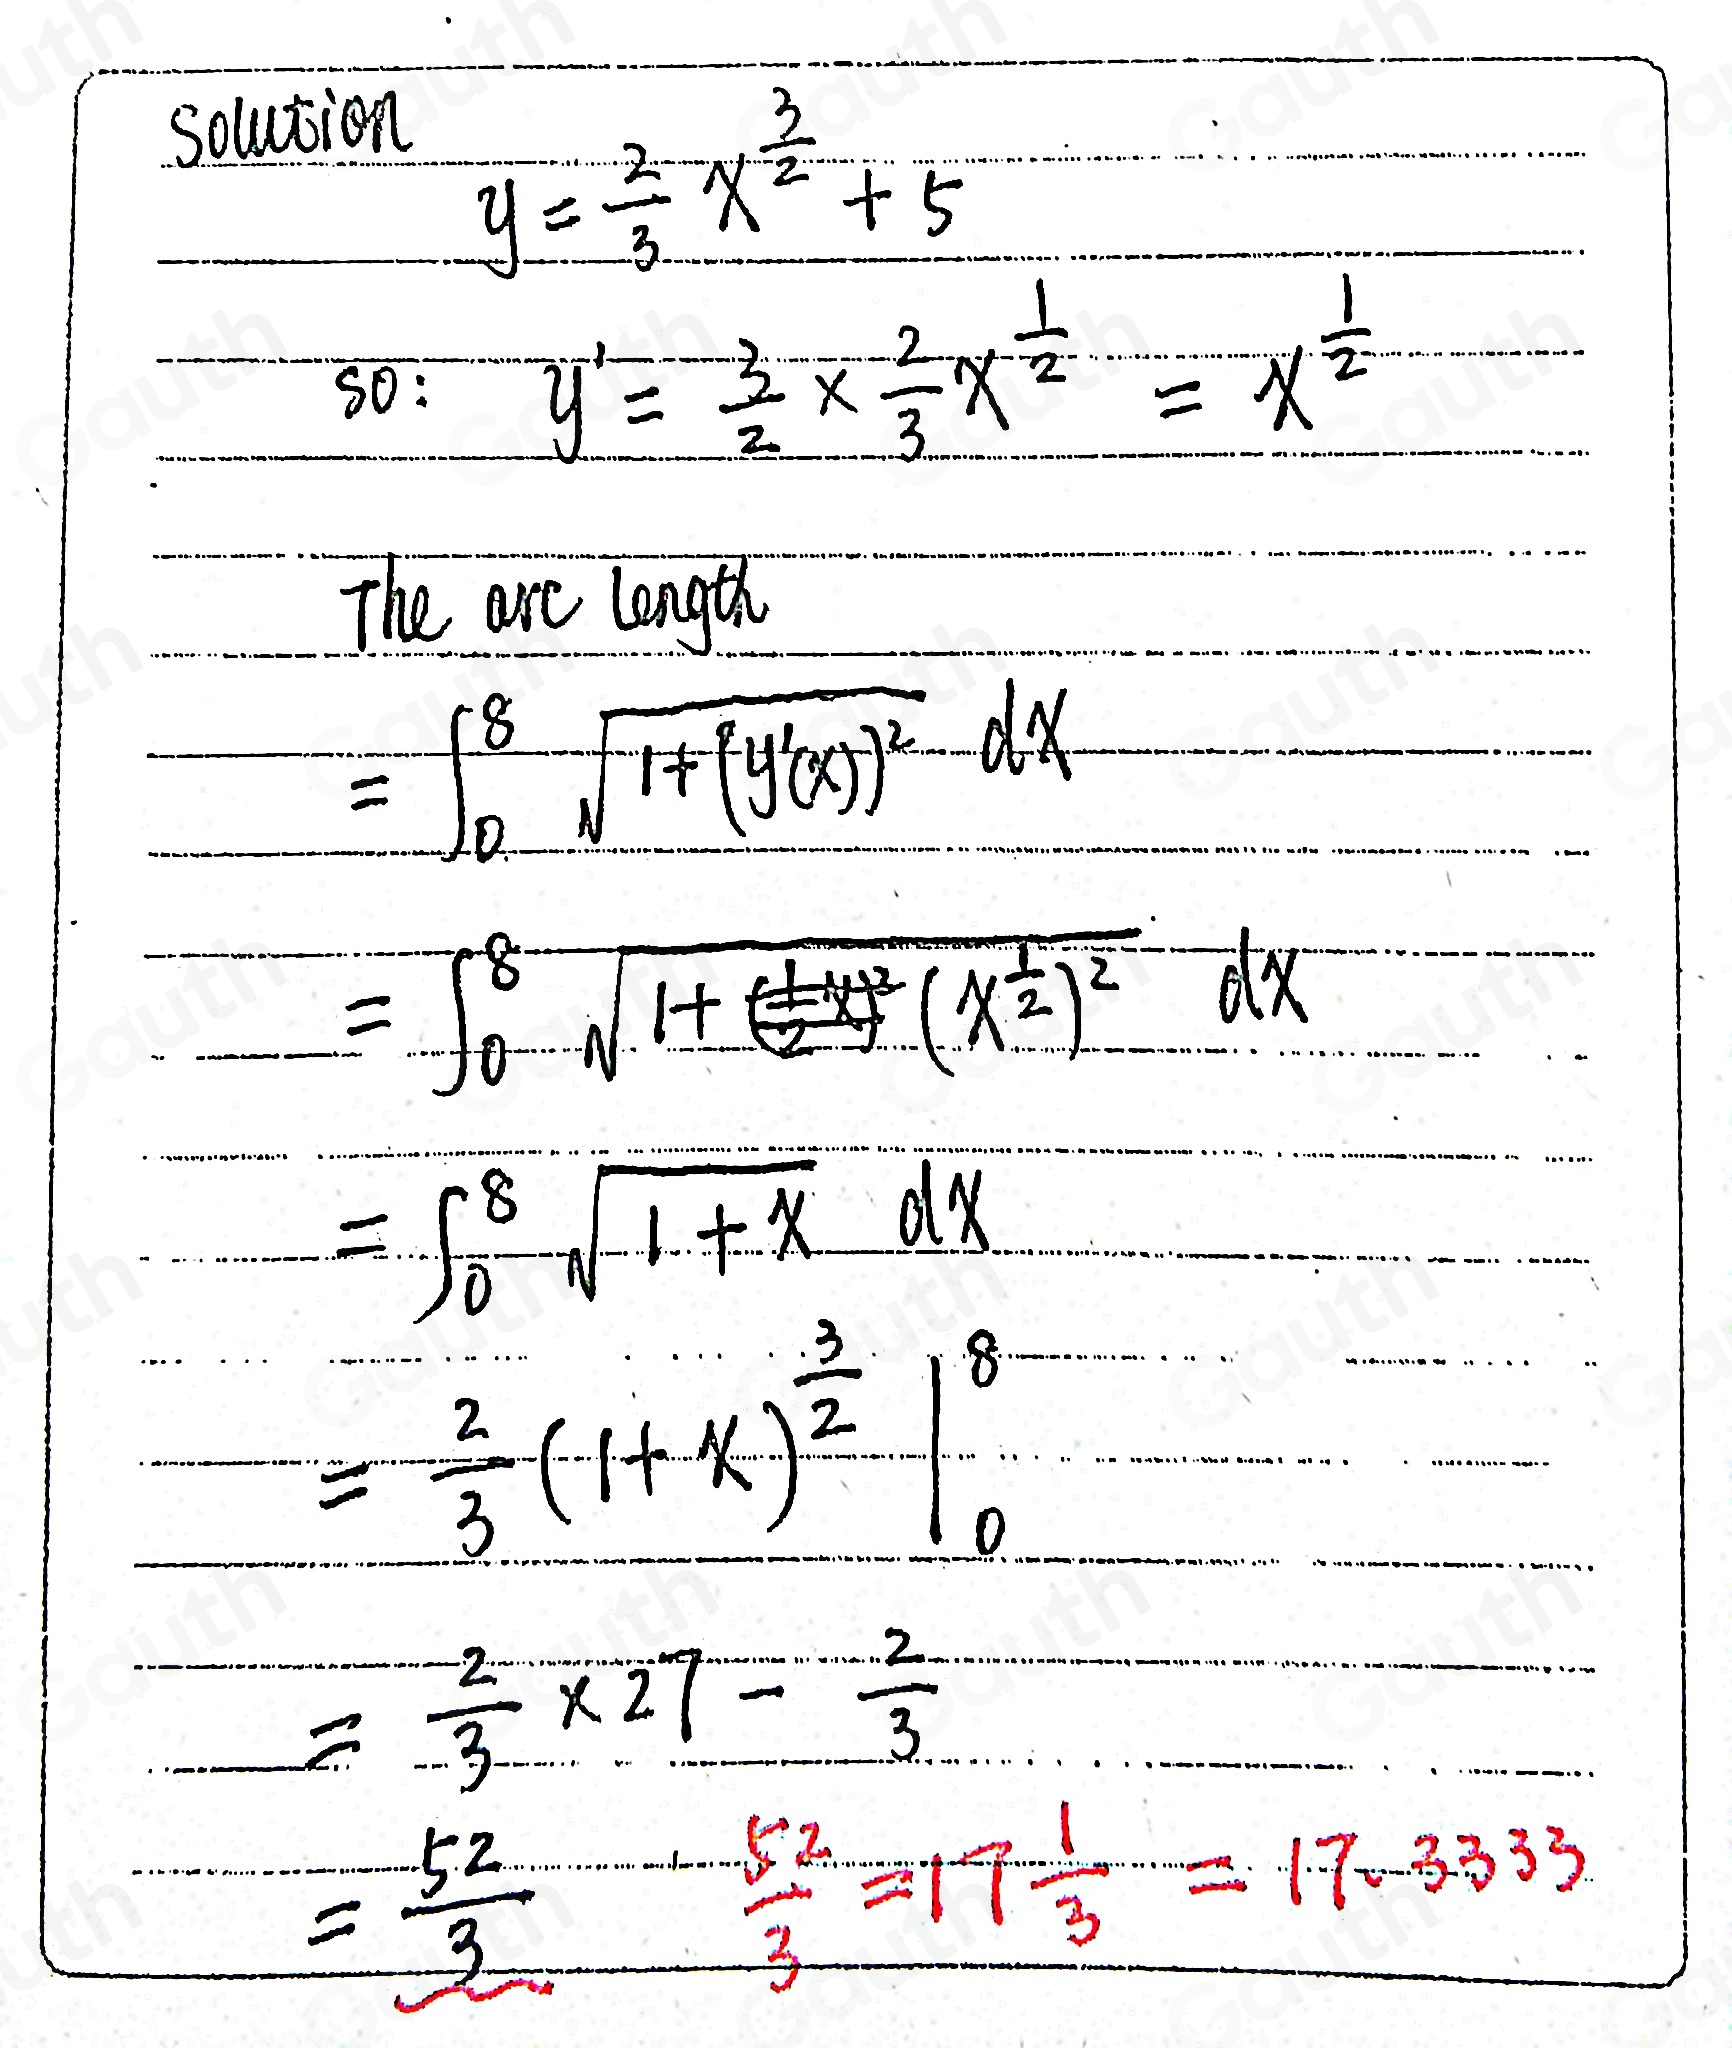 Solution
y = 2/3 x^(3/2) + 5
so: y' = 3/2 × 2/3 x^(1/2) = x^(1/2)
The arc length
= ∫₀⁸ √(1+(y'(x))²) dx
= ∫₀⁸ √(1+ (x^(1/2))²) dx
= ∫₀⁸ √(1+x) dx
= 2/3 (1+x)^(3/2) |₀⁸
= 2/3 × 27 - 2/3
= 52/3 52/3 = 17 1/3 = 17.3333